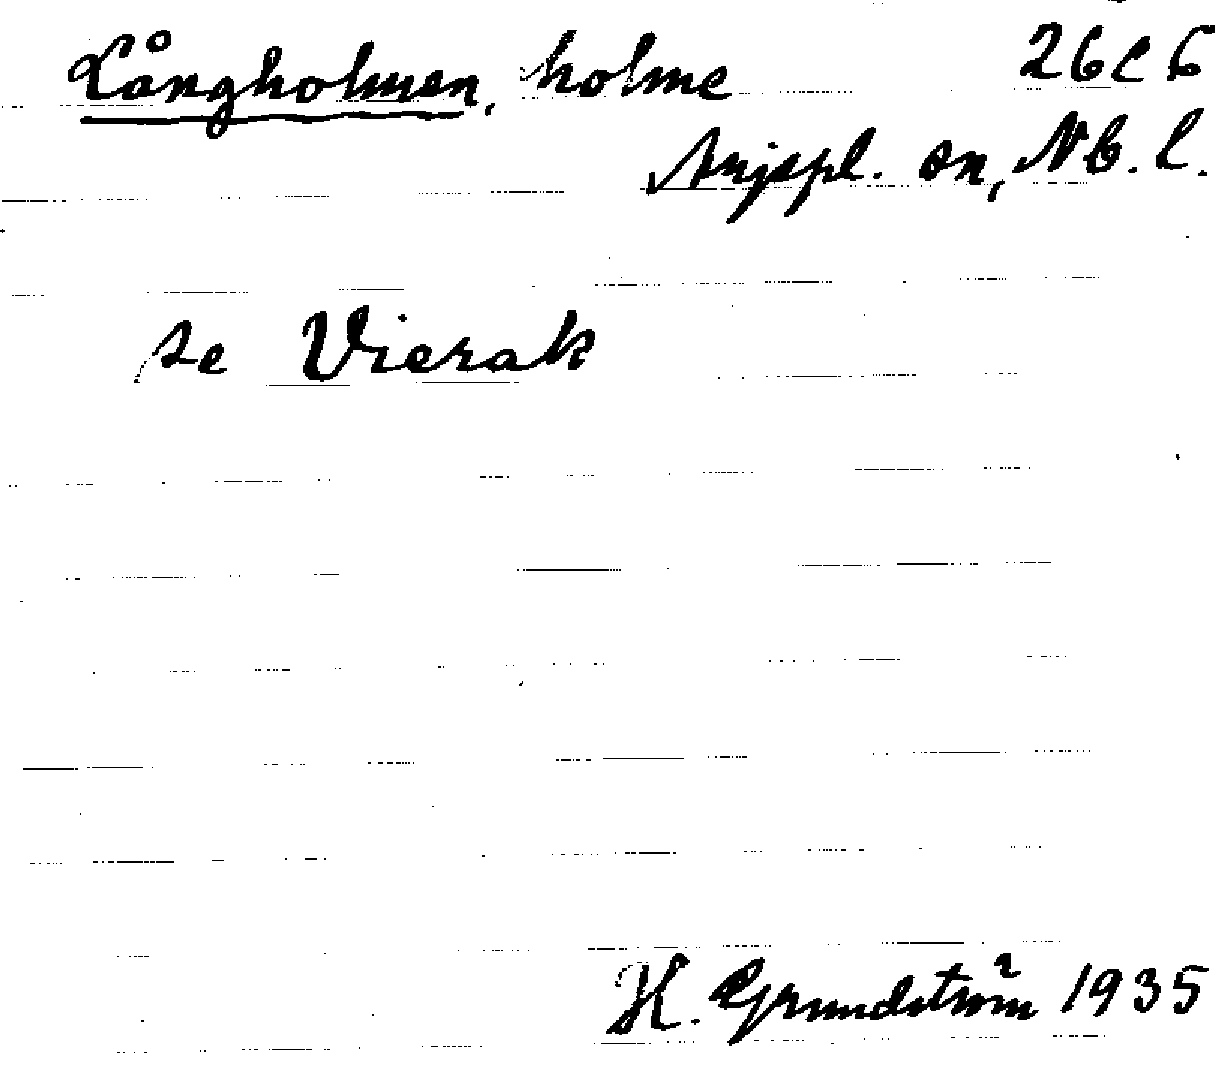 Långholmen, holme 26 C 6
Arjepl. sn, Nb. l.
se Vierak
H. Grundström 1935